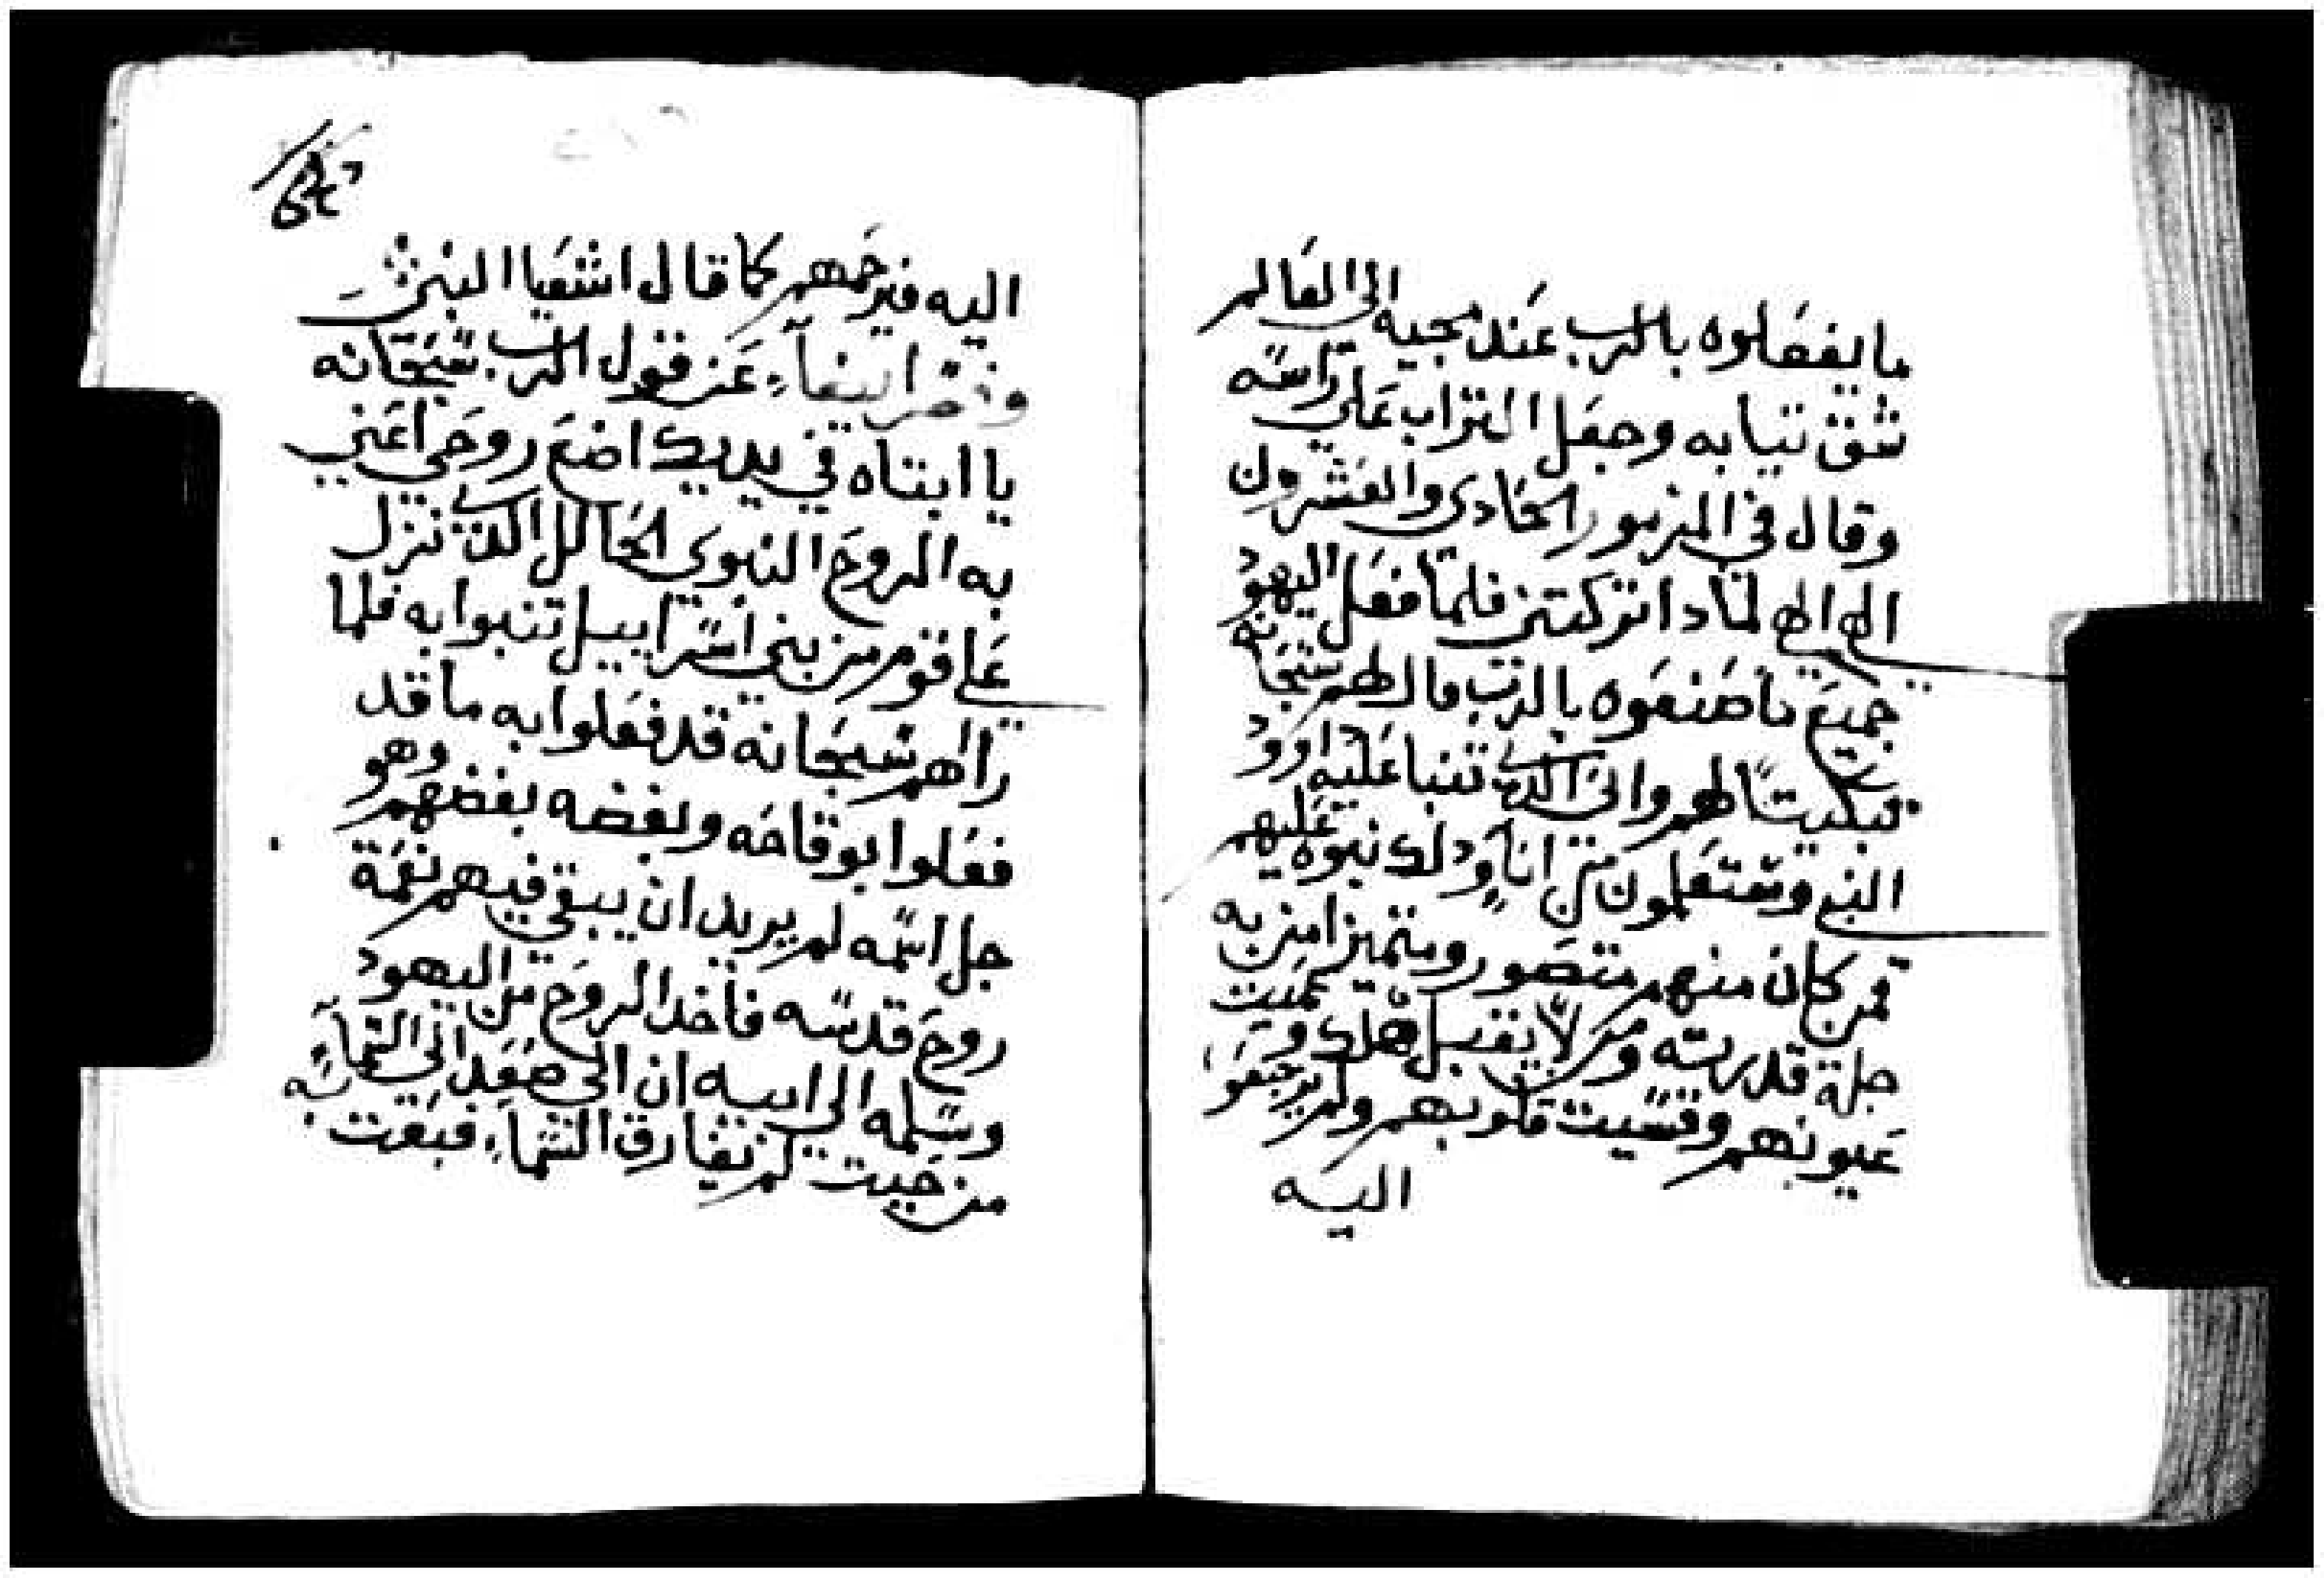 ما يفعلوه بالرب عند مجيه الى العالم
شق تيابه وجعل التراب على راسه
وقال في المزمور الحادي والعشرون
الهي الهي لمادا تركتني فلما فعل اليهود
جميع ما صنعوه بالرب قال لهم سبحانه
تبكيتًا لهم واني الدي تنبا عليه داوود
النبي وستعلمون من انا ودلك نبوه عليهم
فمن كان منهم متصور ومتميز امن به
جلة قدرته ومن لا يقبل هلك و عميت
عيونهم وقسيت قلوبهم ولم يرجعوا
اليه
اليه فيرحمهم كما قال اشعيا النبي
ايضاء عن قول الرب سبحانه
يا ابتاه في يديك اضع روحي اعني
به الروح النبوي الحالل الدي نزل
على قوم من بني اسراييل تنبوا به فلما
راهم سبحانه قد فعلوا به ما قد
فعلوا بوقاحه وبغضه بغضهم وهو
جل اسمه لم يريد ان يبقي فيهم نعمة
روح قدسه فاخد الروح من اليهود
وسلمه الى ابيه ان الى صعد الى السماء
من حيت لم تفارق السماء فبقت